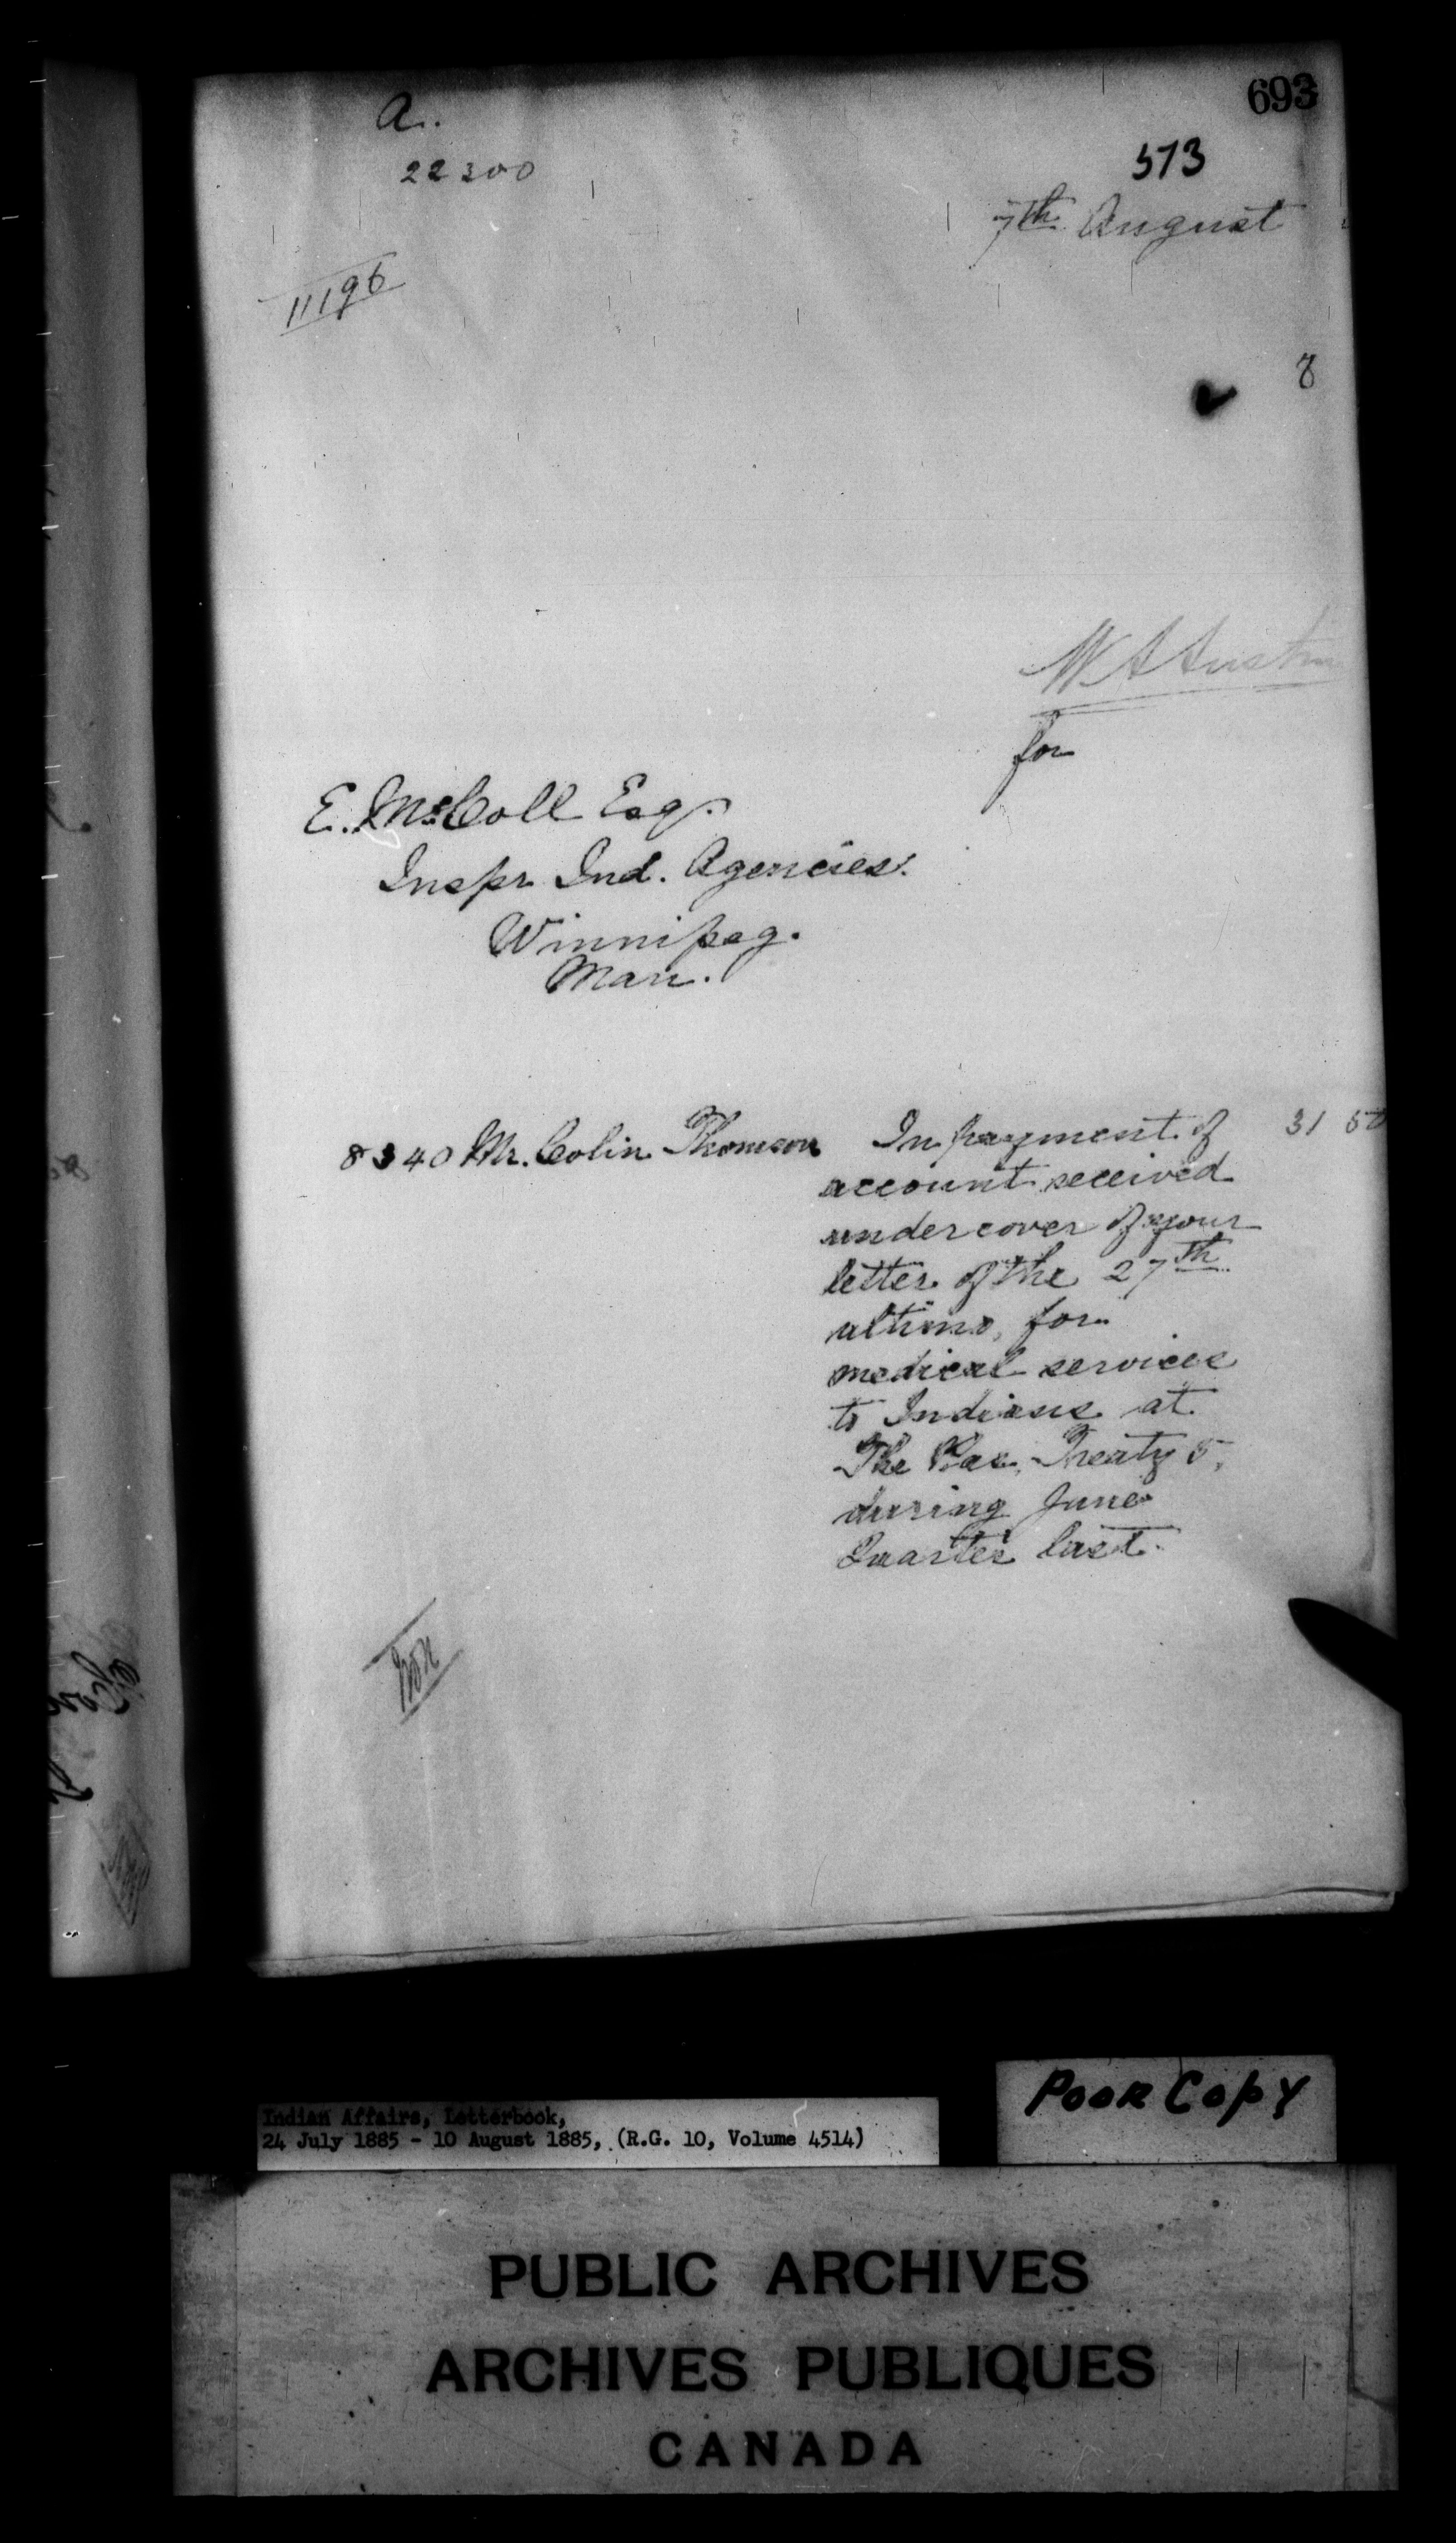 693
a.
573
22300
7th August
11196
8
W A Austin
for
E. McColl Esq.
Inspr Ind. Agencies.
Winnipeg.
Man.
8340 Mr. Colin Thomson In payment of 31 50
account received
under cover of your
letter of the 27th
ultimo, for
medical services
to Indians at
The Pas, Treaty 5,
during June
Quarter last.
Poor Copy
Indian Affairs, Letterbook,
24 July 1885 - 10 August 1885, (R.G. 10, Volume 4514)
PUBLIC ARCHIVES
ARCHIVES PUBLIQUES
CANADA